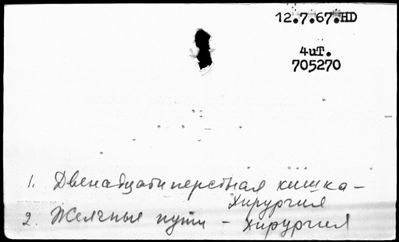 12.7.67.HD
4uT.
705270
1. Двенадцатиперстная кишка –
хирургия
2. Желчные пути – хирургия